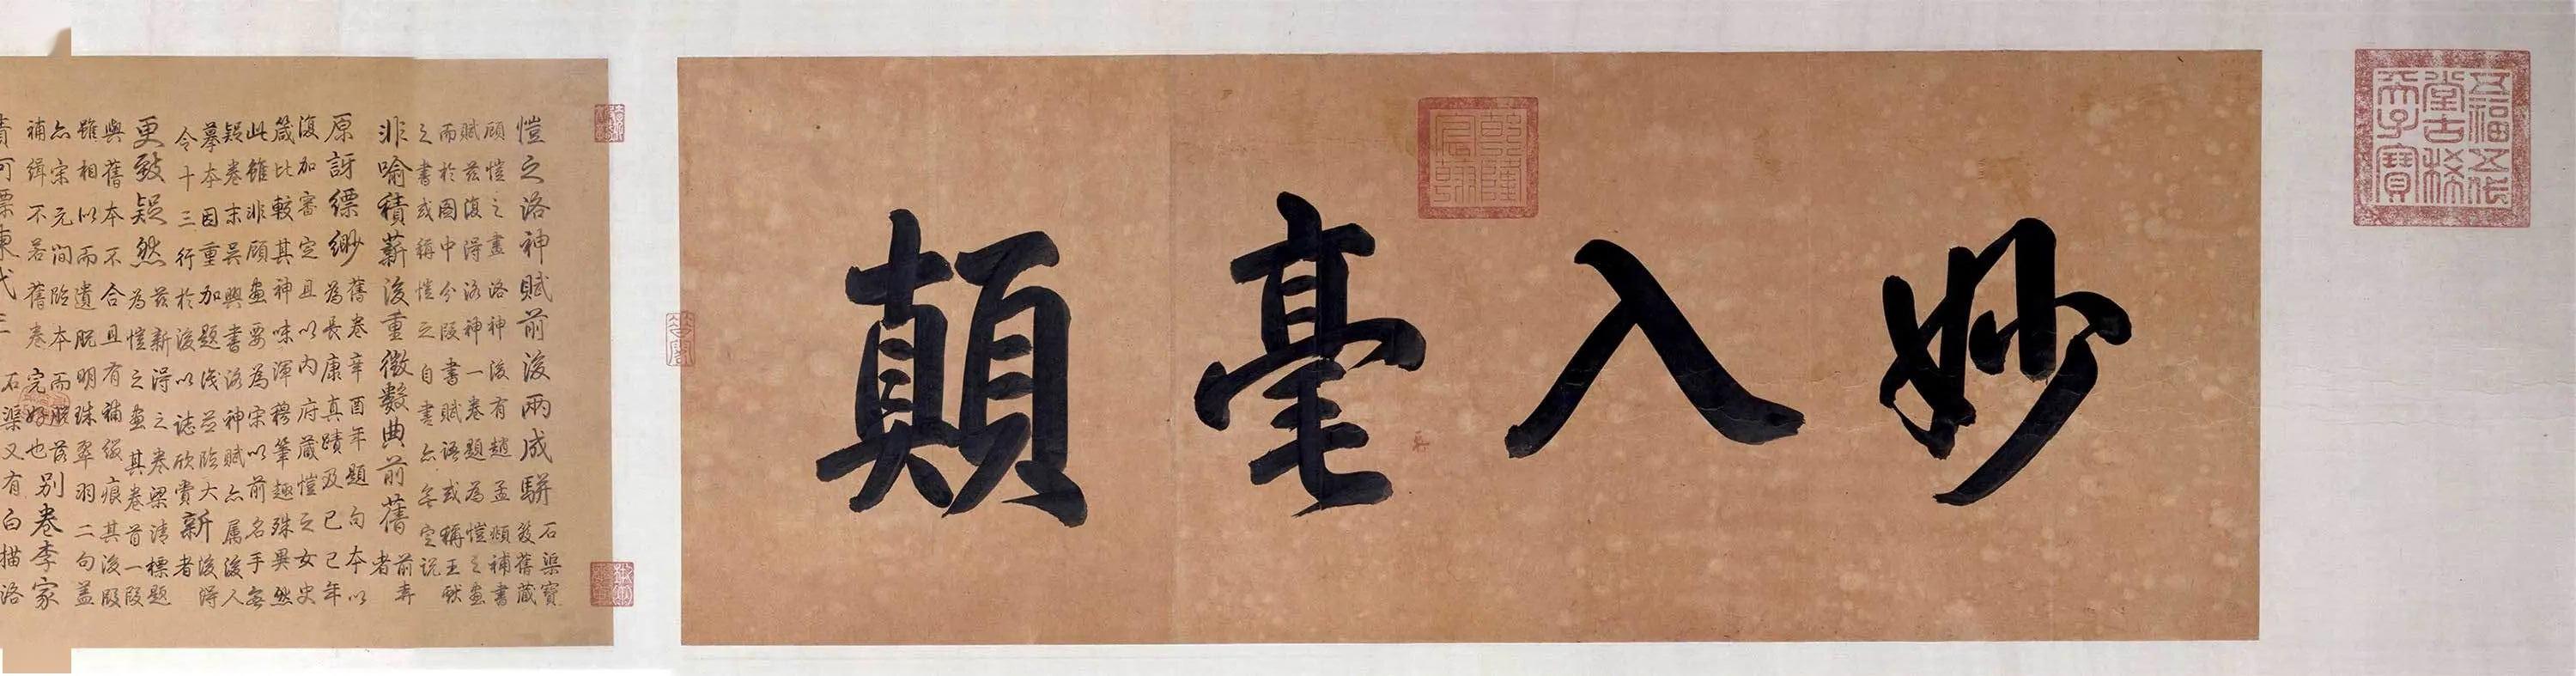 五福五代
堂古稀
天子寶
妙入毫顛
乾隆
宸翰
愷之洛神賦前後兩成駢
石渠寶
笈舊藏
顧愷之畫洛神後有趙孟頫補書
賦茲復得洛神一卷題為愷之畫
而於圖中分段書賦語或稱王獻
之書或稱愷之自書亦無定說
非喻積薪後重徵數典前舊者
前弆
原訝縹緲
舊卷辛酉年題句本以
為長康真蹟及己巳年
復加審定且以內府藏愷之女史
箴比較其神味渾穆筆趣殊異然
此雖非顧畫要為宋以前名手無
疑卷末吳興書洛神賦亦属後人
摹本因重加題識並臨大
令十三行於後以誌欣賞
新者
後得
更致疑然
茲新得之卷梁清標題
為愷之畫其卷首一段
與舊本不合且有補綴痕其後段
雖相以而遺脫明珠翠羽二句蓋
亦宋元間臨本而
補緝不若舊卷完好也
別卷李家
石渠又有白描洛